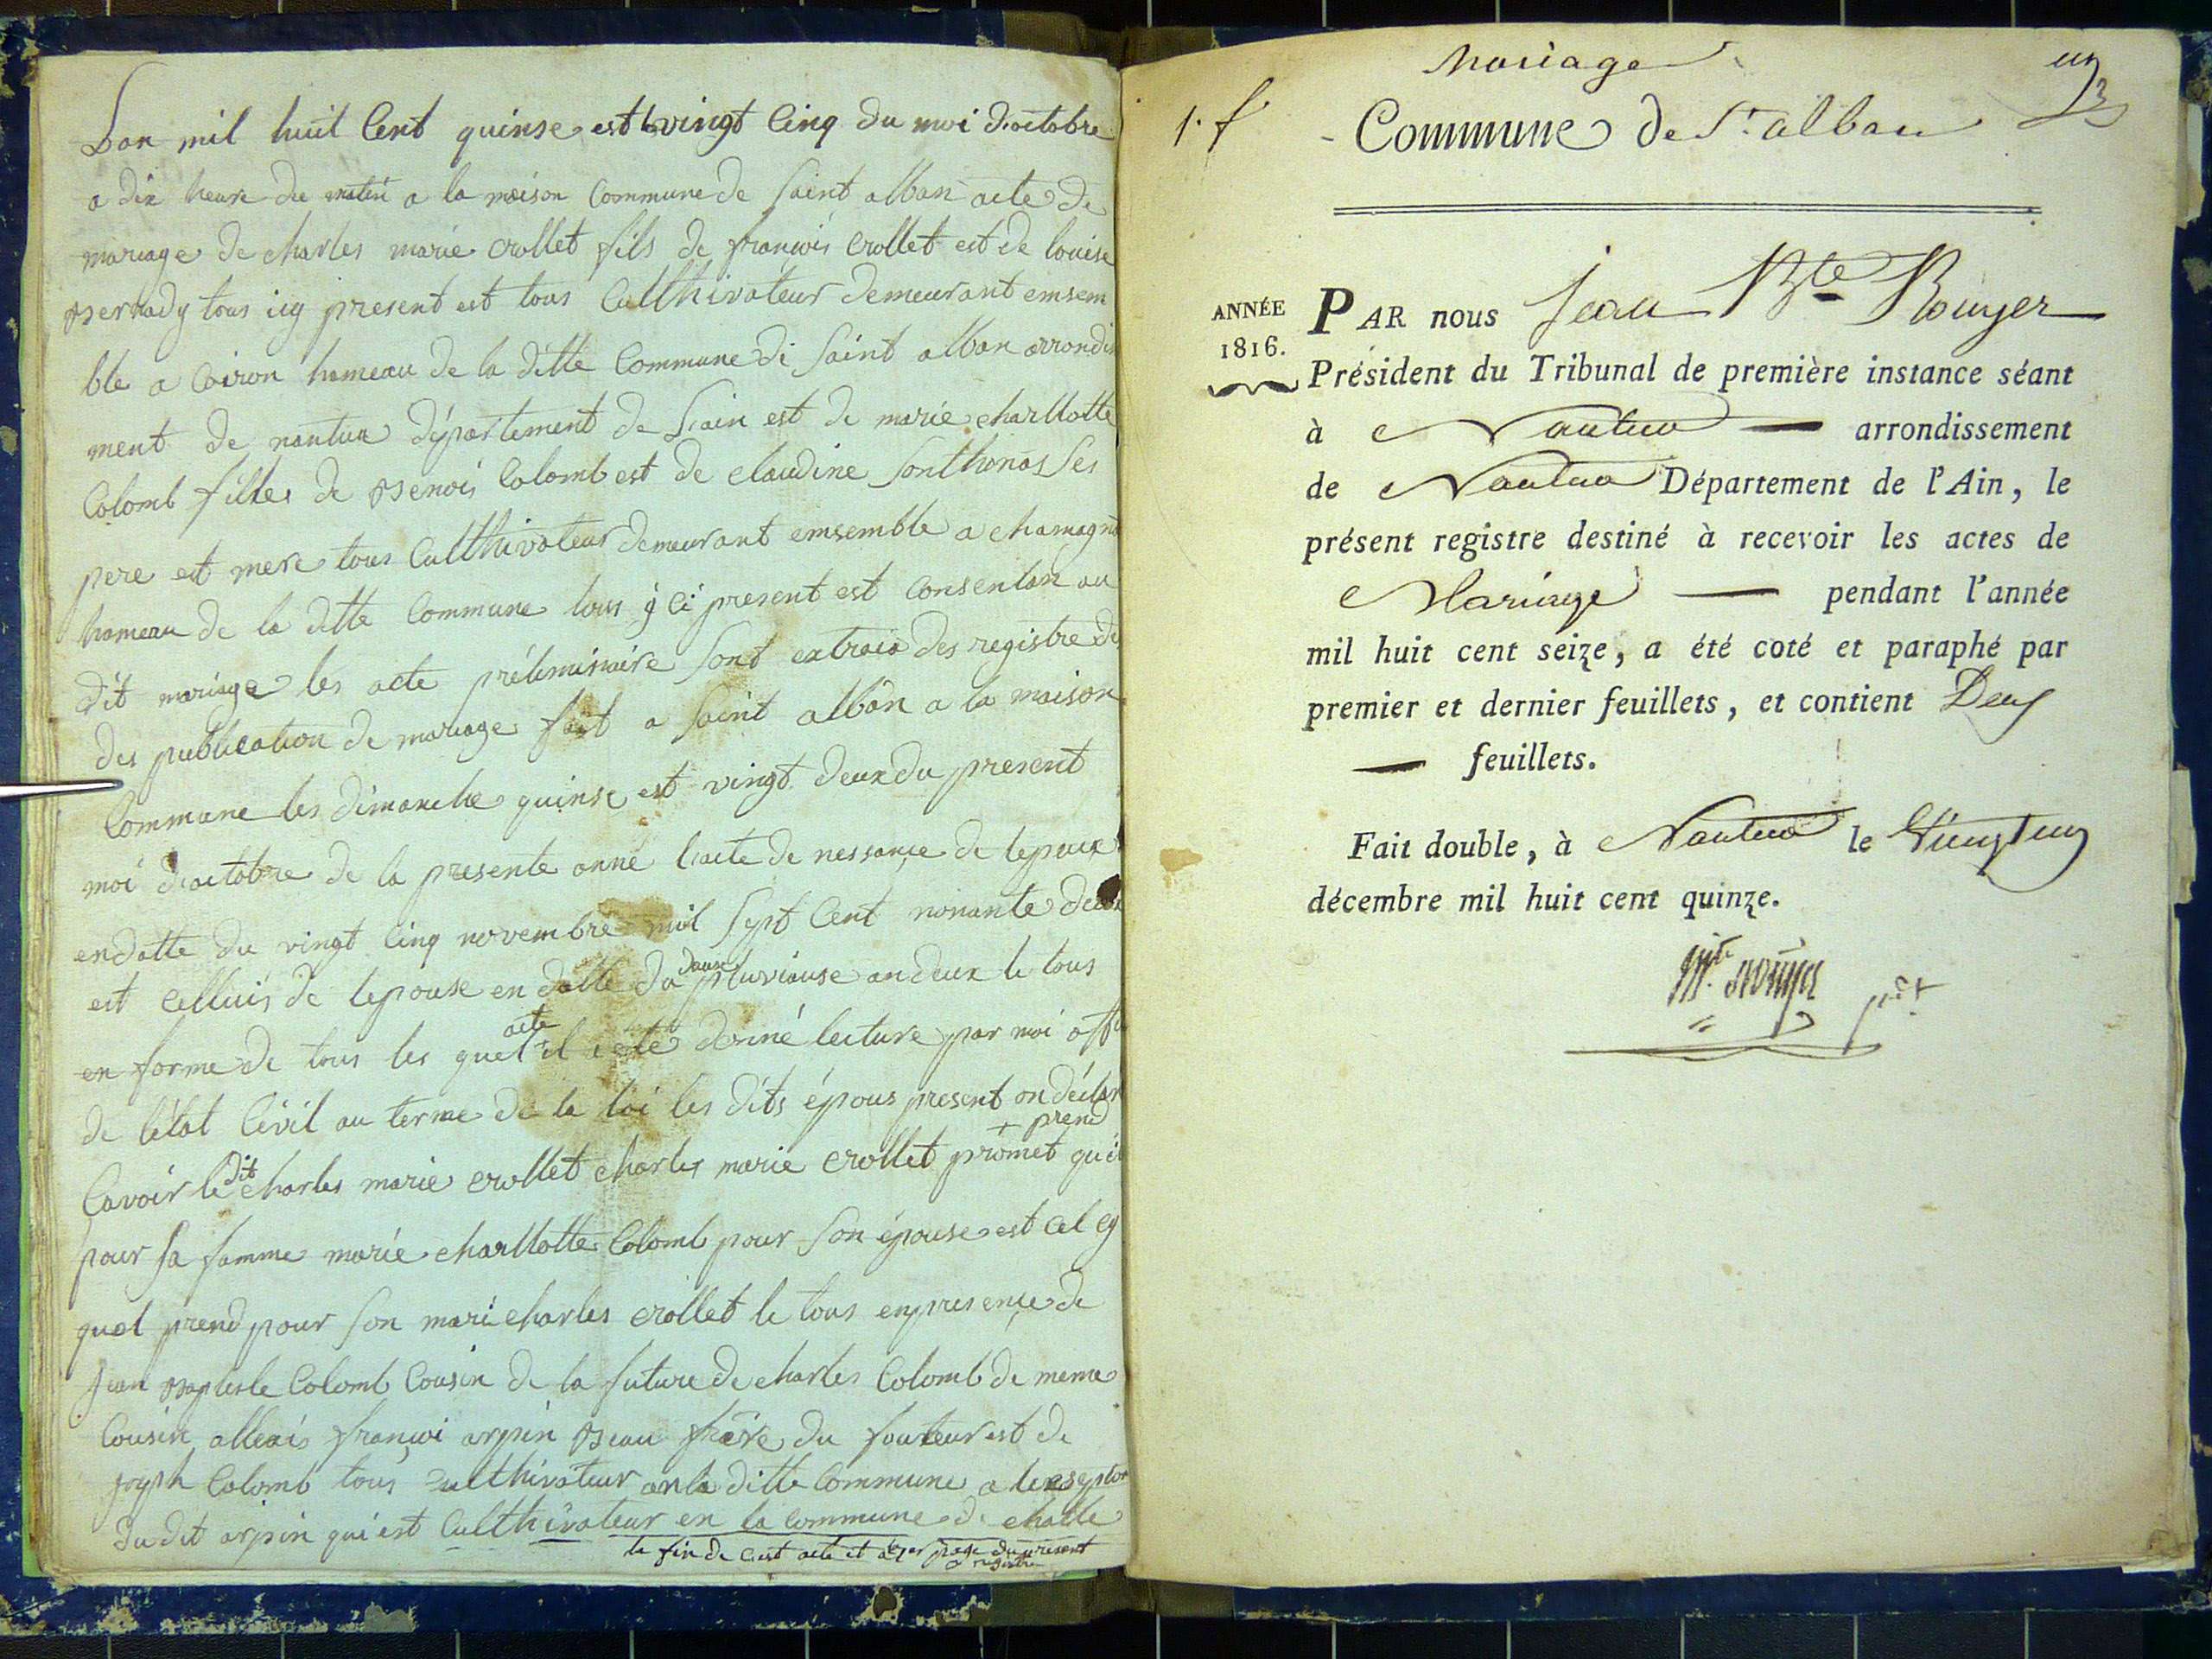 Lan mil huit Cent quinse est le vingt Cinq du moi d'octobre
a dix heure du matin a la maison Commune de Saint alban acte de
mariage de charles marie crollet fils de françois crollet est de louise
pernady tous icy present est tous Culthivateur demeurant emsem
ble a Coiron hameau de la ditte Commune di Saint alban arrondi
ment de nantua département de L'ain est de marie charllotte
Colomb filles de Benois Colomb est de claudine Sonthonas Ses
pere est mere tous Culthivateur demeurant emsemble a chamagn
hameau de la ditte Commune tous y Ci present est Consentan au
dit mariage les acte préliminaire Sont extrais des registre de
des publication de mariage fait a Saint alban a la maison
Commune les dimanche quinse est vingt deux du present
moi d'octobre de la presente anné l'acte de nessance de lepoux
en datte du vingt Cinq novembre mil Sept Cent nonante deux
est Celluis de lepouse en datte du douse pluviause an deux le tous
en forme de tous les quel acte il a eté donné lecture par moi off
de létat Civil au terme de la loi les dits épous present on déclar
Cavoir le dit charles marie crollet charles marie crollet promet + prend qu'il
pour Sa famme marie charllotte Colomb pour Son épouse est Cel cy
quel prend pour Son mari charles crollet le tous en presence de
Jean Baptiste Colomb Cousin de la future de charles Colomb de meme
Cousin allexis françoi arpin Beau frère du fouteur est de
joseph Colomb tous Culthivateur en la ditte Commune a lexseption
du dit arpin qui est Culthivateur en la Commune de challe
la fin de C'est acte et a la 1er page du present
registre
mariage
un
1. f
Commune de St alban
ANNÉE
1816.
PAR nous Jean Bte Rouyer
Président du Tribunal de première instance séant
à Nantua arrondissement
de Nantua Département de l'Ain, le
présent registre destiné à recevoir les actes de
Mariage pendant l'année
mil huit cent seize, a été coté et paraphé par
premier et dernier feuillets, et contient Deux
feuillets.
Fait double, à Nantua le Vingt un
décembre mil huit cent quinze.
Rouyer pdt